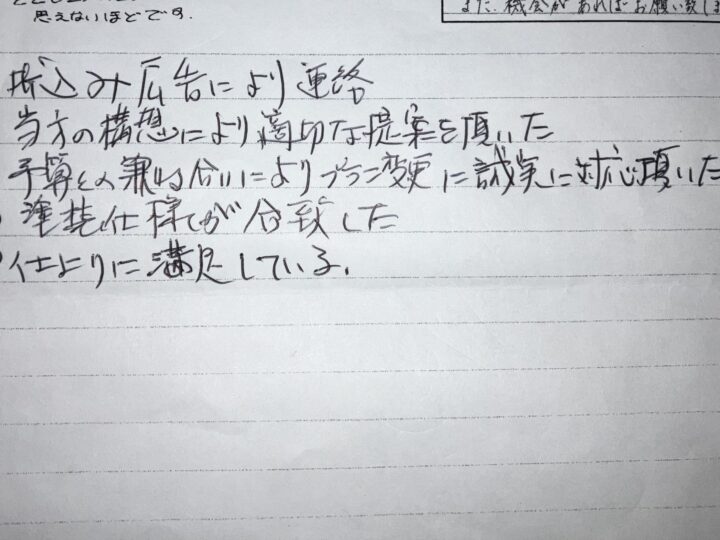 思えないほどです.
また、機会があればお願い致しま
折込み広告により連絡
当方の構想により適切な提案を頂いた
予算との兼ね合いによりプラン変更に誠実に対応頂いた
塗装仕様が合致した
仕上りに満足している.